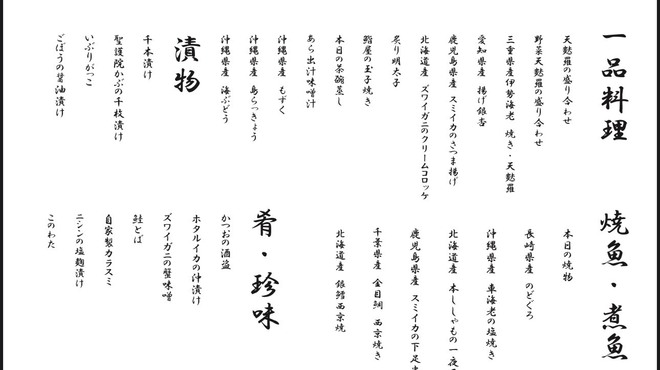 一品料理
天麩羅の盛り合わせ
野菜天麩羅の盛り合わせ
三重県産伊勢海老 焼き・天麩羅
愛知県産 揚げ銀杏
鹿児島県産 スミイカのさつま揚げ
北海道産 ズワイガニのクリームコロッケ
炙り明太子
鮨屋の玉子焼き
本日の茶碗蒸し
あら出汁味噌汁
沖縄県産 もずく
沖縄県産 島らっきょう
沖縄県産 海ぶどう
漬物
千本漬け
聖護院かぶの千枚漬け
いぶりがっこ
ごぼうの醤油漬け
焼魚・煮魚
本日の焼物
長崎県産 のどぐろ
沖縄県産 車海老の塩焼き
北海道産 本ししゃもの一夜
鹿児島県産 スミイカの下足
千葉県産 金目鯛 西京焼き
北海道産 銀鱈西京焼
肴・珍味
かつおの酒盗
ホタルイカの沖漬け
ズワイガニの蟹味噌
鮭とば
自家製カラスミ
ニシンの塩麹漬け
このわた